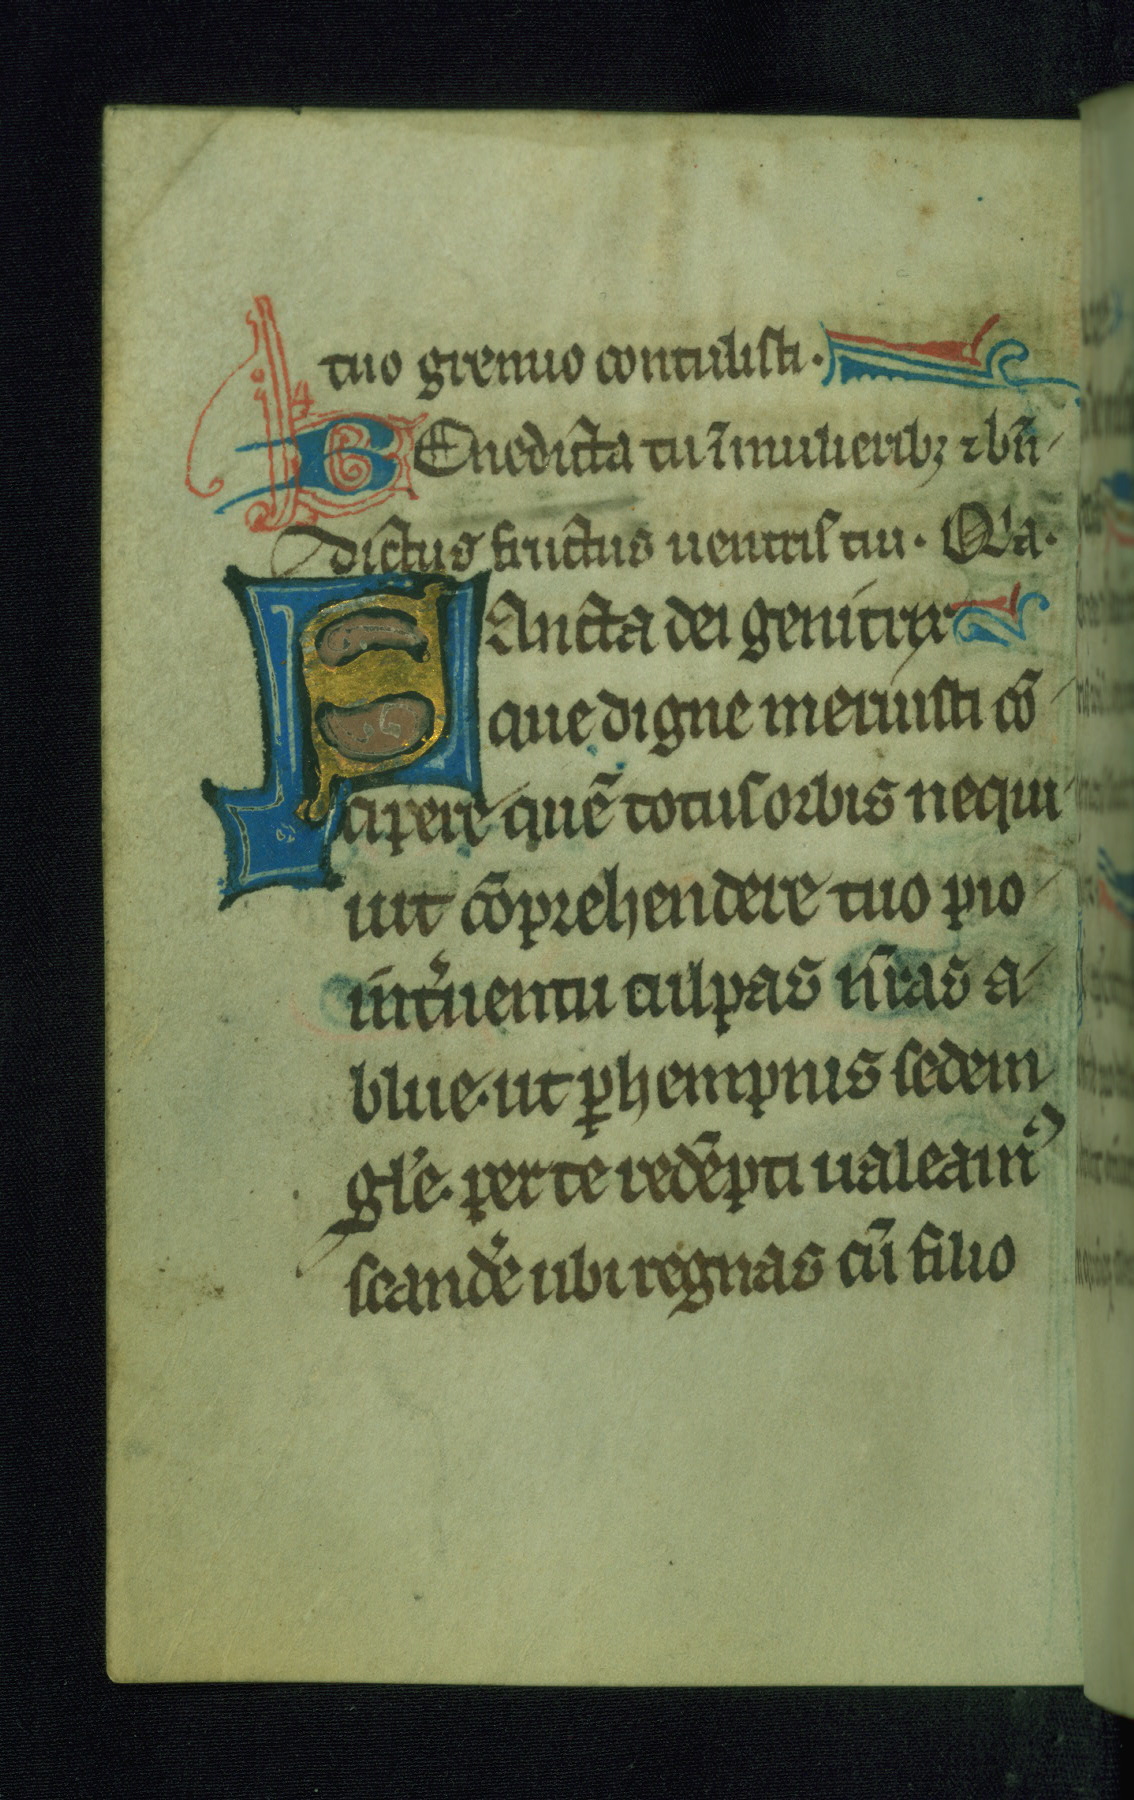 tuo gremio contulisti.
BEnedicta tu ī mulierib; ⁊ bn̄
dictus fructus uentris tui. Oła.
SAncta dei genitrix
que digne meruisti cō
cipere quē totus orbis nequi
uit cōprehendere tuo pio
int̓uentu culpas nr̄as a
blue. ut ꝑhempnis sedem
głe. per te redēpti ualeam᾽
scand̓e ubi regnas cū filio